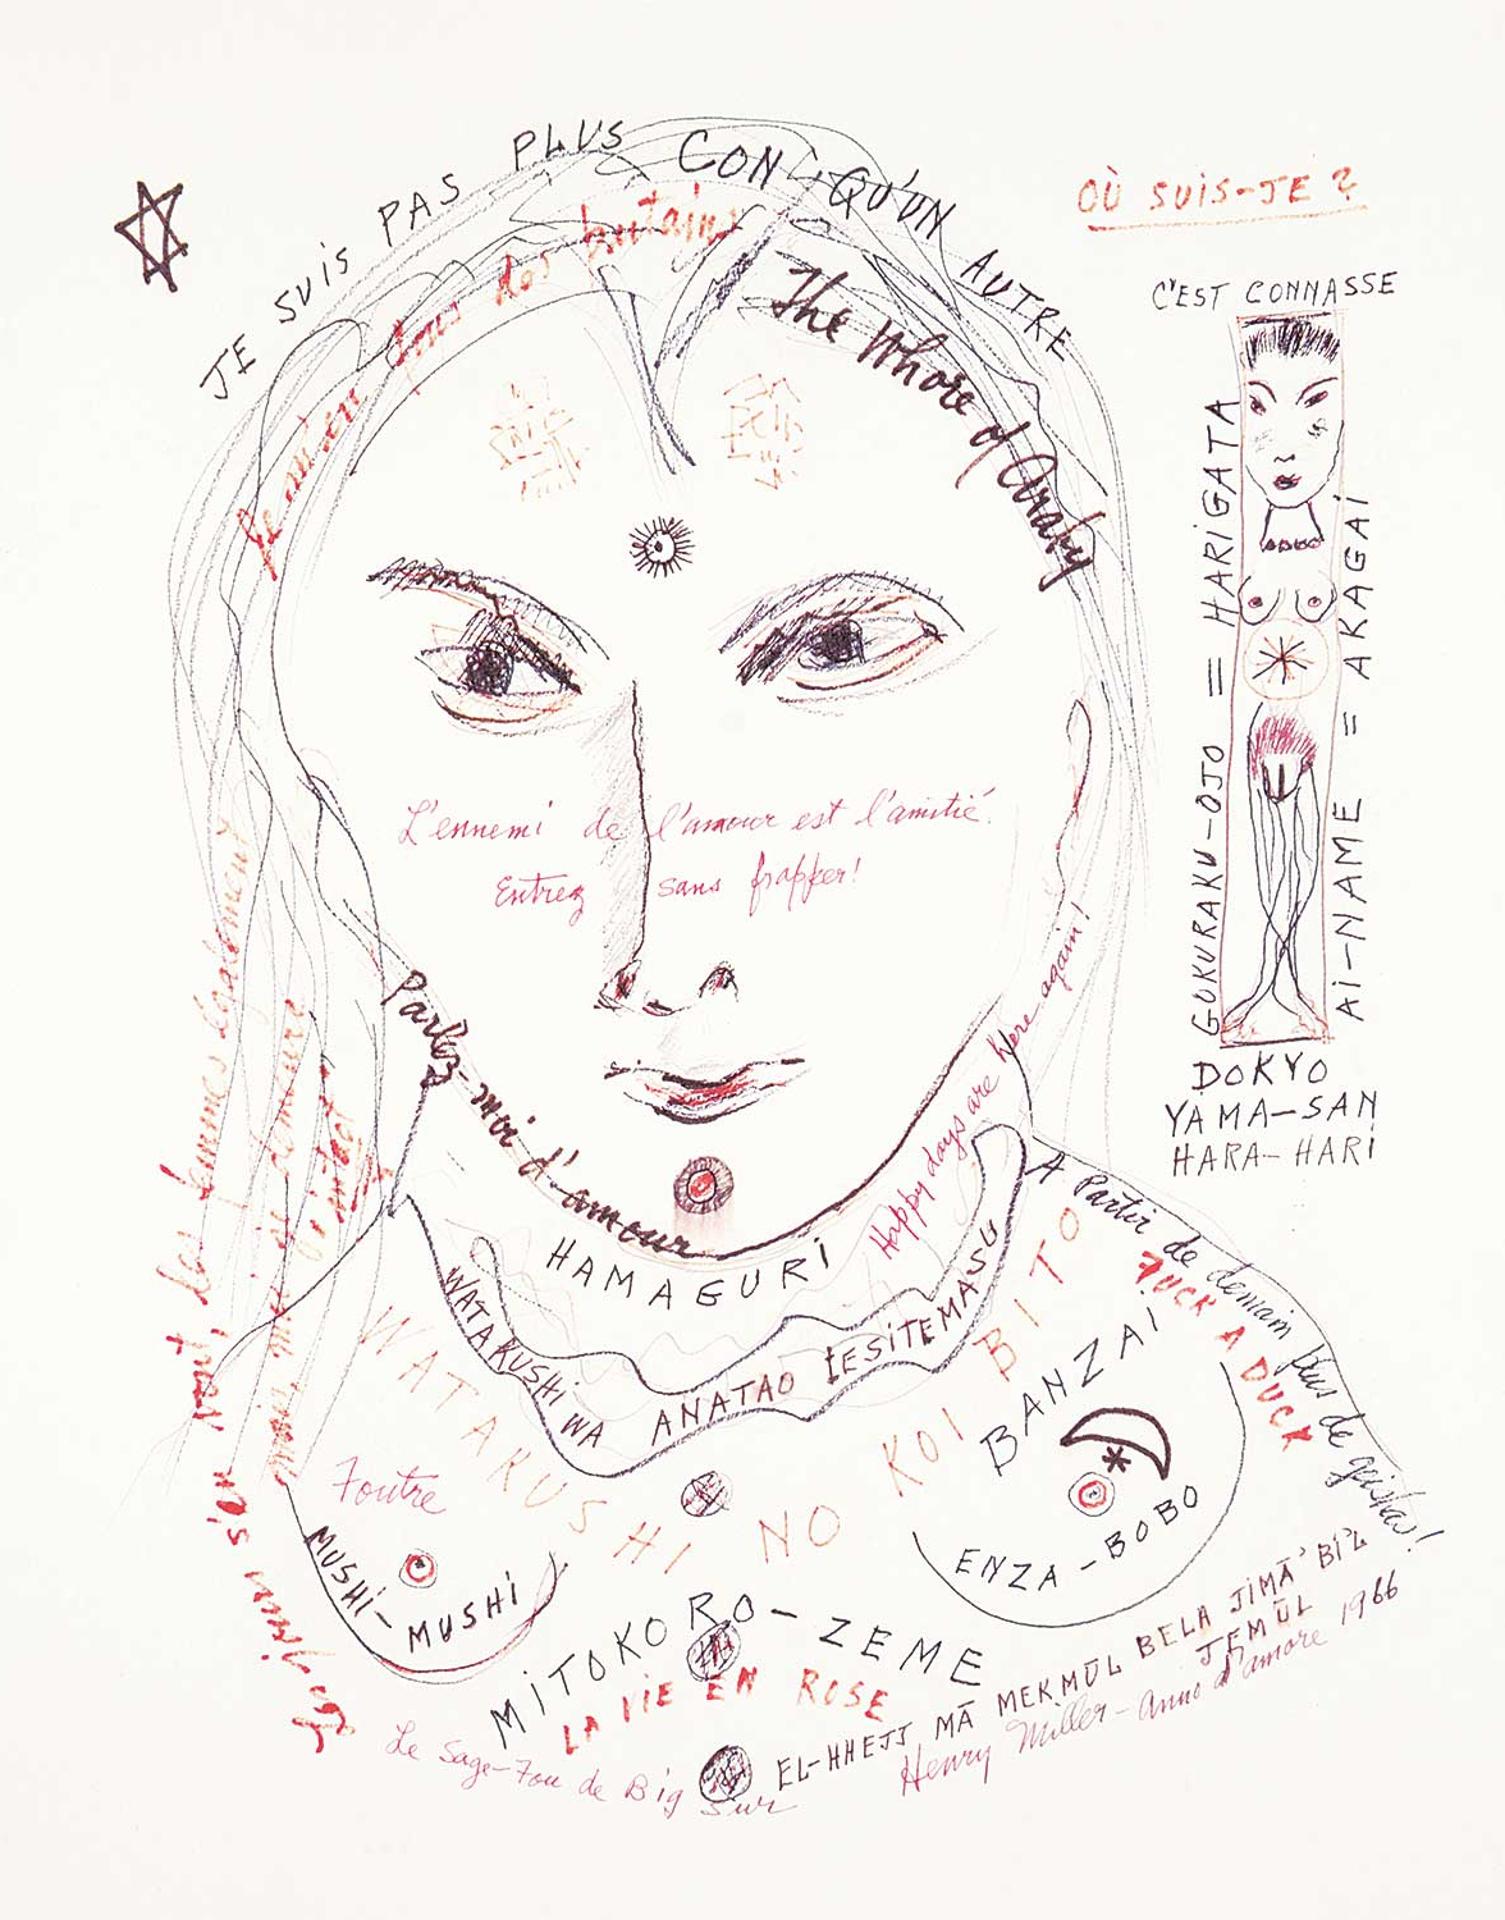 JE SUIS PAS PLUS CON QU'UN AUTRE
OÙ SUIS-JE?
C'EST CONNASSE
des putains
The Whore of Araby
GOKURAKU-OJO = HARIGATA
AI-NAME = AKAGAI
DOKYO
YAMA-SAN
HARA-HARI
L'ennemi de l'amour est l'amitié.
Entrez sans frapper!
Parlez-moi d'amour
Happy days are here again!
HAMAGURI
WATAKUSHI WA ANATAO
WATAKUSHI NO KOI BITO
A partir de demain plus de geishas!
FUCK A DUCK
BANZAI
ENZA-BOBO
Foutre
MUSHI-MUSHI
les femmes également
s'en vont,
MITOKORO-ZEME
LA VIE EN ROSE
Le Sage-Fou de Big Sur
EL-HHEJJ MĀ MEKMŪL BELA JIMĀ' BI'L
JEMŪL
Henry Miller - Anno d'amore 1966